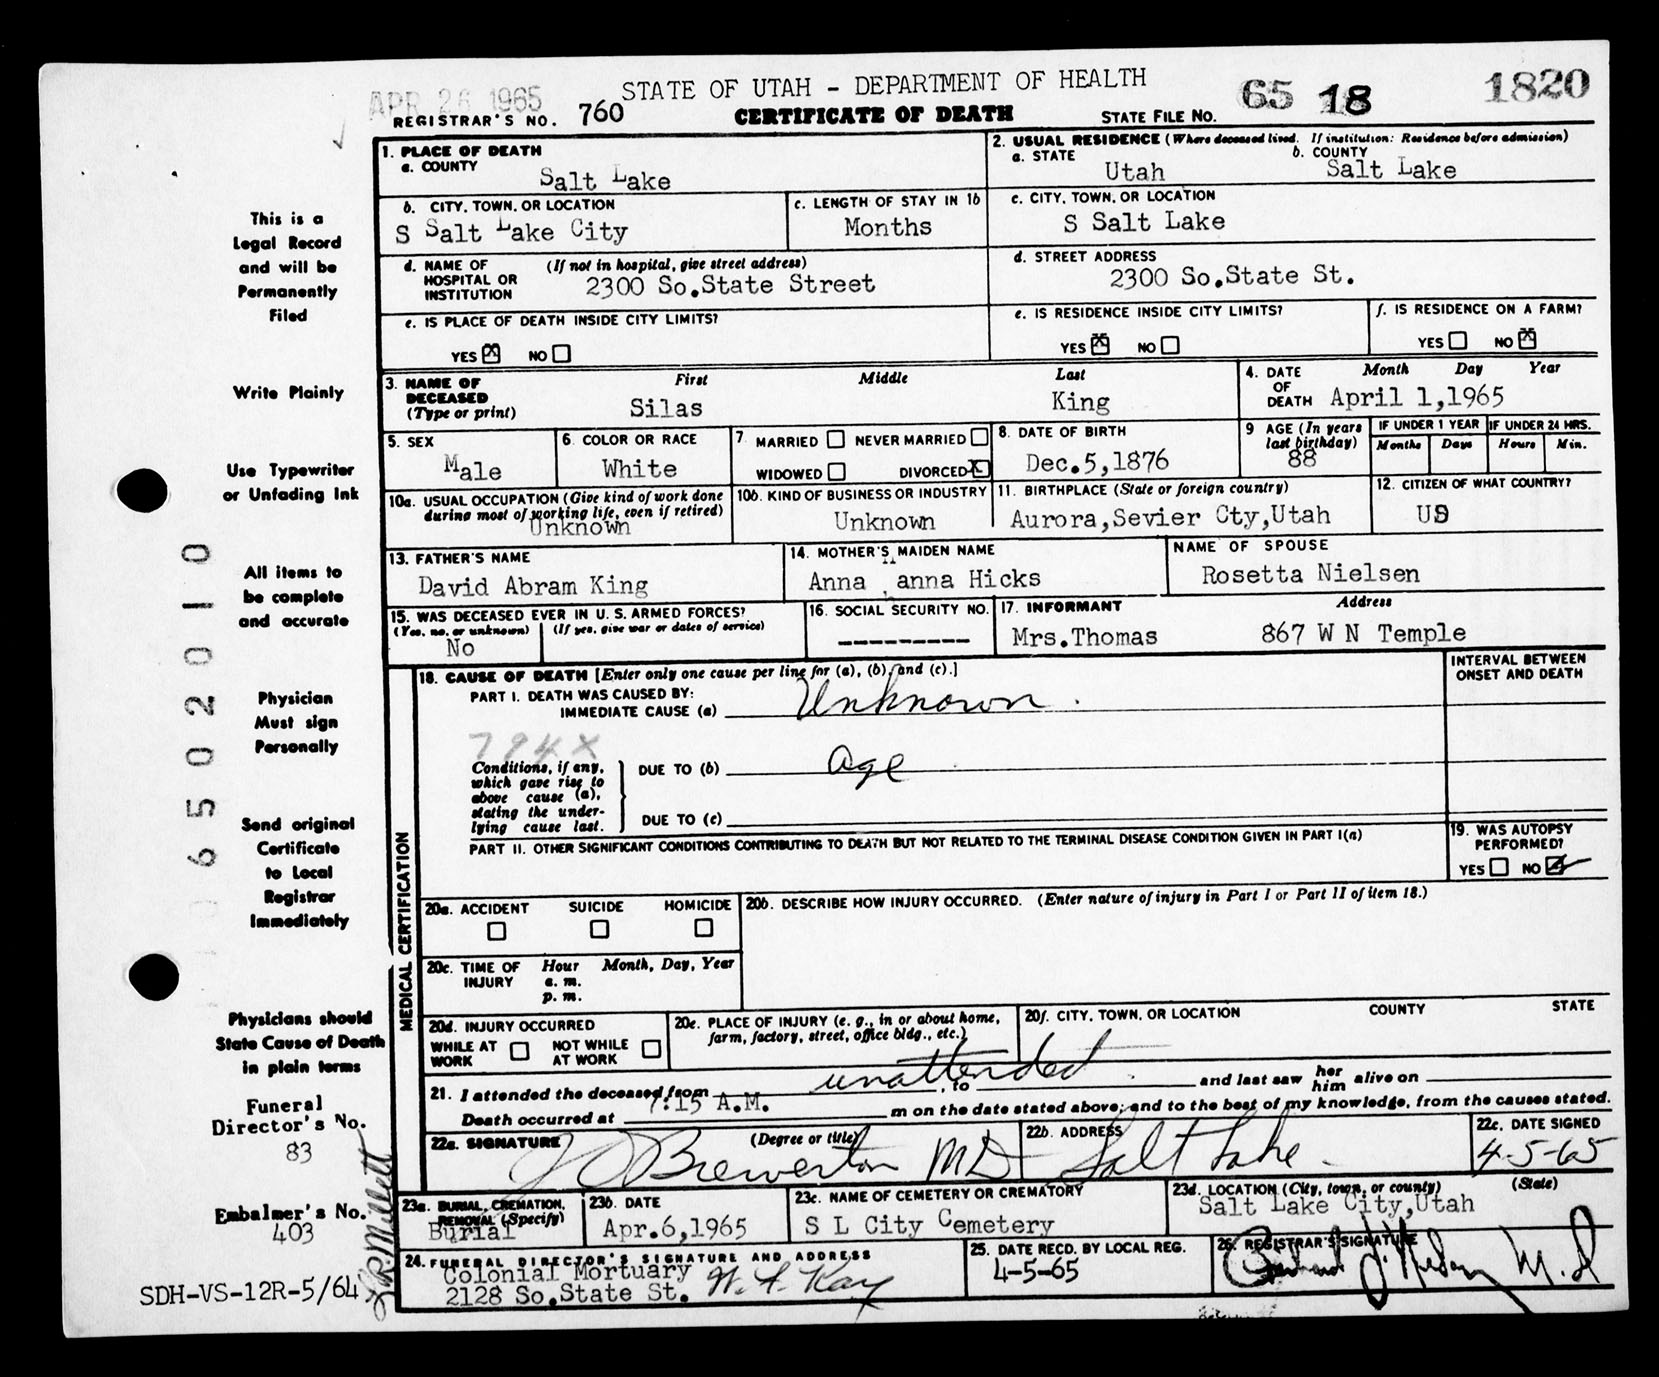 APR 26 1965
STATE OF UTAH - DEPARTMENT OF HEALTH
65 18 1820
REGISTRAR'S NO. 760 CERTIFICATE OF DEATH STATE FILE NO.
1. PLACE OF DEATH
a. COUNTY
Salt Lake
2. USUAL RESIDENCE (Where deceased lived. If institution: Residence before admission)
a. STATE b. COUNTY
Utah Salt Lake
b. CITY, TOWN, OR LOCATION
S Salt Lake City
c. LENGTH OF STAY IN 1b
Months
c. CITY, TOWN, OR LOCATION
S Salt Lake
d. NAME OF HOSPITAL OR INSTITUTION
(If not in hospital, give street address)
2300 So.State Street
d. STREET ADDRESS
2300 So.State St.
e. IS PLACE OF DEATH INSIDE CITY LIMITS?
YES X NO
e. IS RESIDENCE INSIDE CITY LIMITS?
YES X NO
f. IS RESIDENCE ON A FARM?
YES NO X
3. NAME OF DECEASED (Type or print)
First Middle Last
Silas King
4. DATE OF DEATH
Month Day Year
April 1,1965
5. SEX
Male
6. COLOR OR RACE
White
7 MARRIED NEVER MARRIED
WIDOWED DIVORCED X
8. DATE OF BIRTH
Dec.5,1876
9 AGE (In years last birthday)
88
IF UNDER 1 YEAR IF UNDER 24 HRS.
Months Days Hours Min.
10a. USUAL OCCUPATION (Give kind of work done
during most of working life, even if retired)
Unknown
10b. KIND OF BUSINESS OR INDUSTRY
Unknown
11. BIRTHPLACE (State or foreign country)
Aurora,Sevier Cty,Utah
12. CITIZEN OF WHAT COUNTRY?
US
13. FATHER'S NAME
David Abram King
14. MOTHER'S MAIDEN NAME
Anna Hanna Hicks
NAME OF SPOUSE
Rosetta Nielsen
15. WAS DECEASED EVER IN U. S. ARMED FORCES?
(Yes, no, or unknown) (If yes, give war or dates of service)
No
16. SOCIAL SECURITY NO.
---------
17. INFORMANT Address
Mrs.Thomas 867 W N Temple
18. CAUSE OF DEATH [Enter only one cause per line for (a), (b), and (c).]
INTERVAL BETWEEN
ONSET AND DEATH
PART I. DEATH WAS CAUSED BY:
IMMEDIATE CAUSE (a) Unknown.
794X
Conditions, if any,
which gave rise to
above cause (a),
stating the under-
lying cause last.
DUE TO (b) age
DUE TO (c)
PART II. OTHER SIGNIFICANT CONDITIONS CONTRIBUTING TO DEATH BUT NOT RELATED TO THE TERMINAL DISEASE CONDITION GIVEN IN PART I(a)
19. WAS AUTOPSY
PERFORMED?
YES NO
MEDICAL CERTIFICATION
20a. ACCIDENT SUICIDE HOMICIDE
20b. DESCRIBE HOW INJURY OCCURRED. (Enter nature of injury in Part I or Part II of item 18.)
20c. TIME OF INJURY
Hour Month, Day, Year
a. m.
p. m.
20d. INJURY OCCURRED
WHILE AT WORK NOT WHILE AT WORK
20e. PLACE OF INJURY (e. g., in or about home,
farm, factory, street, office bldg., etc.)
20f. CITY, TOWN, OR LOCATION COUNTY STATE
21. I attended the deceased from unattended, to and last saw her him alive on
Death occurred at 7:15 A.M. m on the date stated above; and to the best of my knowledge, from the causes stated.
22a. SIGNATURE (Degree or title)
J O Brewerton MD
22b. ADDRESS
Salt Lake
22c. DATE SIGNED
4-5-65
23a. BURIAL, CREMATION,
REMOVAL (Specify)
Burial
23b. DATE
Apr.6,1965
23c. NAME OF CEMETERY OR CREMATORY
S L City Cemetery
23d. LOCATION (City, town, or county) (State)
Salt Lake City,Utah
24. FUNERAL DIRECTOR'S SIGNATURE AND ADDRESS
Colonial Mortuary
2128 So.State St. W. F. Kay
25. DATE RECD. BY LOCAL REG.
4-5-65
26. REGISTRAR'S SIGNATURE
M.D
This is a
Legal Record
and will be
Permanently
Filed
Write Plainly
Use Typewriter
or Unfading Ink
All items to
be complete
and accurate
Physician
Must sign
Personally
Send original
Certificate
to Local
Registrar
Immediately
Physicians should
State Cause of Death
in plain terms
Funeral
Director's No.
83
Embalmer's No.
403
Millett
SDH-VS-12R-5/64
0 6 5 0 2 0 1 0